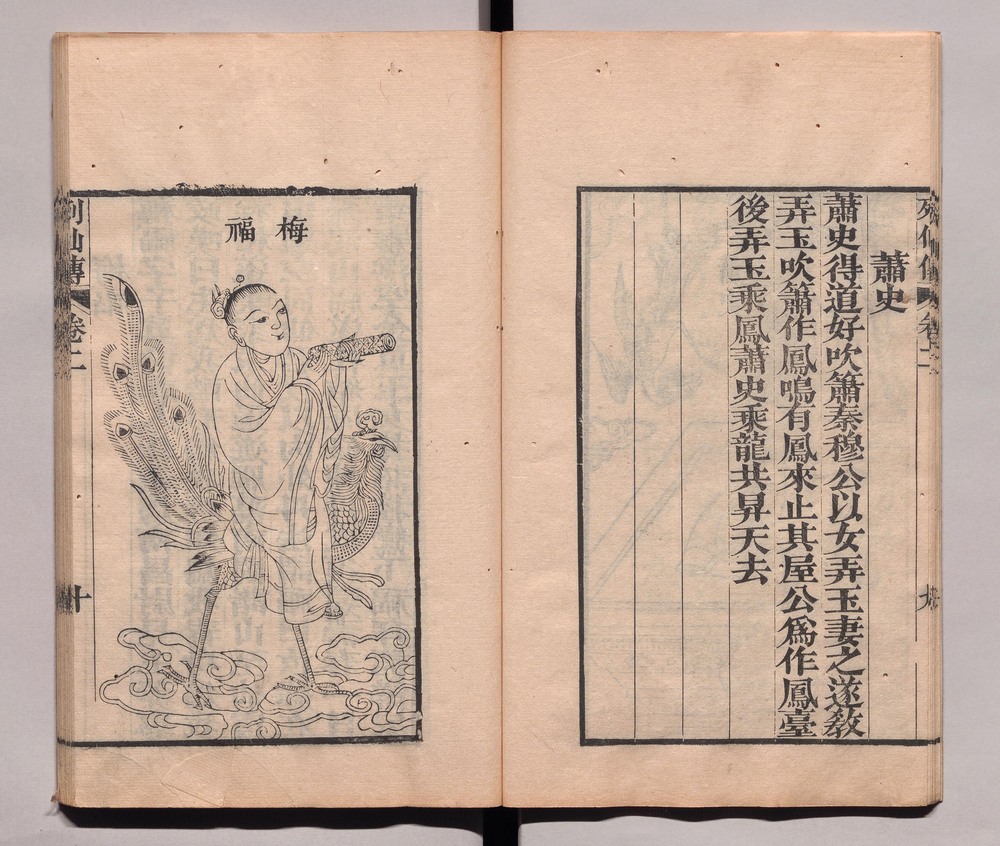 蕭史
蕭史得道好吹簫秦穆公以女弄玉妻之遂敎
弄玉吹簫作鳳鳴有鳳來止其屋公爲作鳳臺
後弄玉乘鳳蕭史乘龍共昇天去
梅福
列仙傳
卷二
十